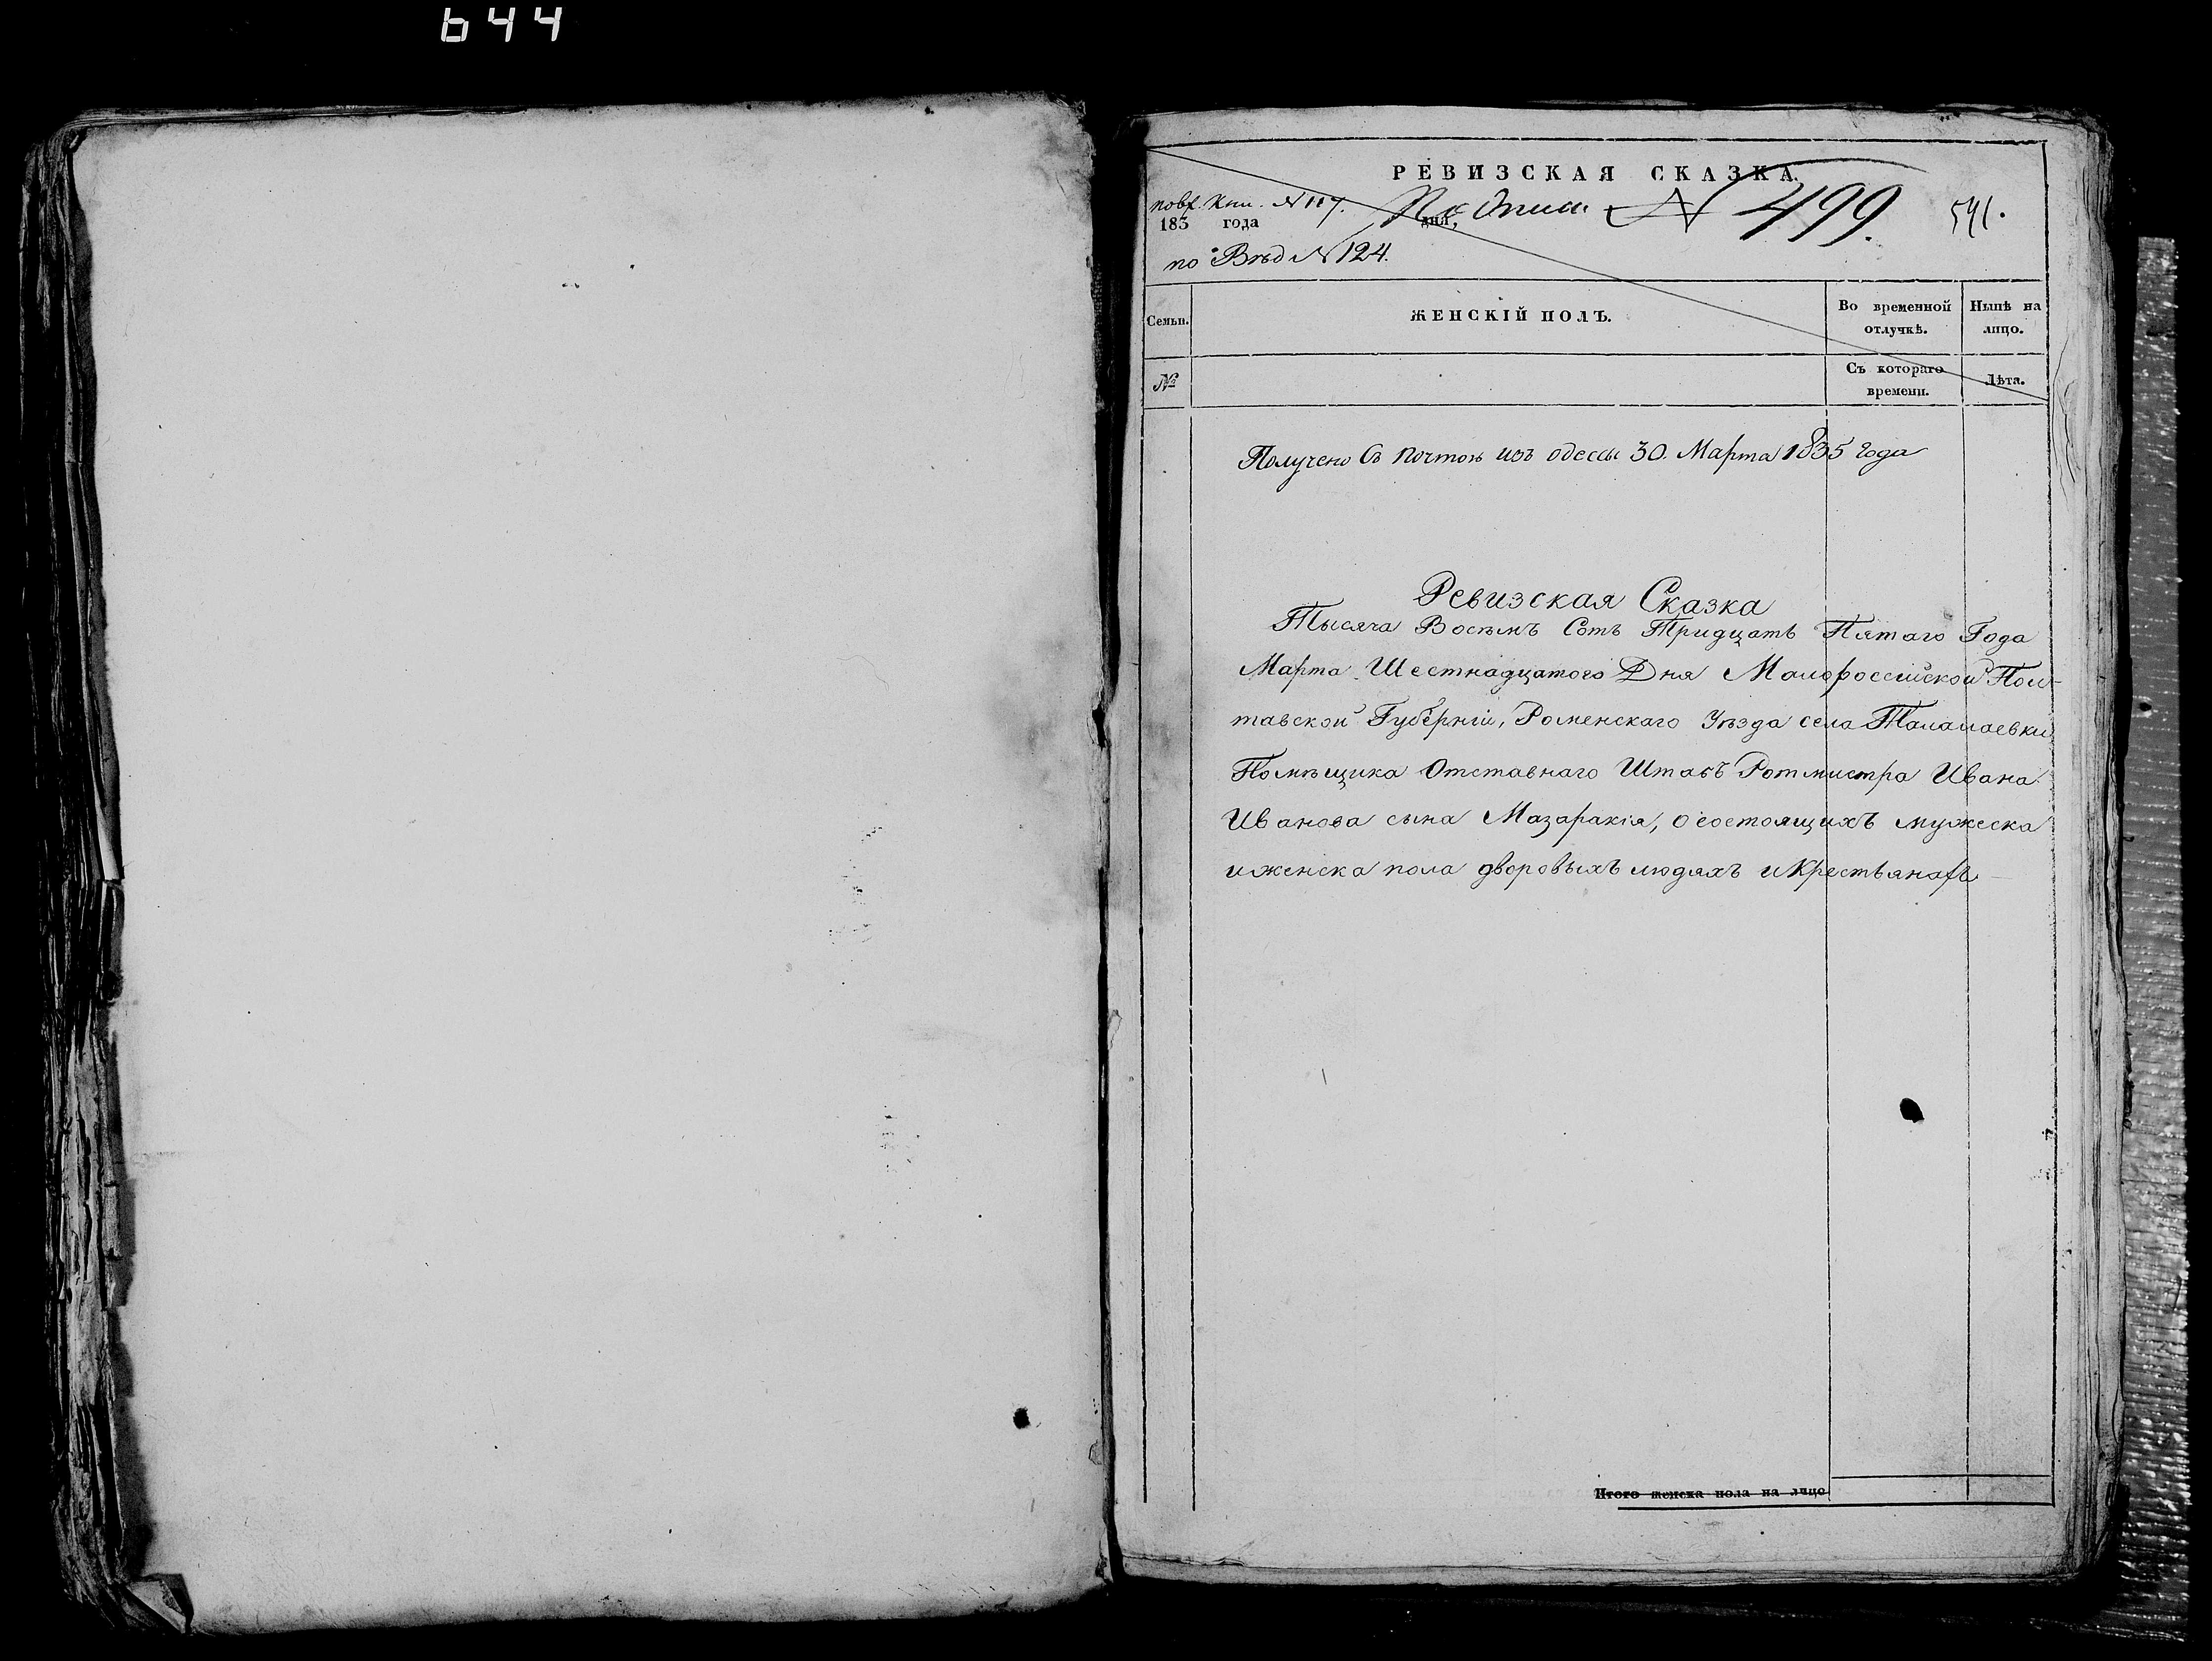 644
РЕВИЗСКАЯ СКАЗКА.
Кни. N 117. По Описи N 499. 541.
183 года дня,
по Вѣд N 124.
Семьи. ЖЕНСКІЙ ПОЛЪ. Во временной отлучкѣ. Нынѣ на лицо.
№ Съ котораго времени. Лѣта.
Получено Съ почтою изъ одессы 30. Марта 1835 года
Ревизская Сказка
Тысяча Восѣмъ Сотъ Тридцать Пятаго Года
Марта Шестнадцатого Дня Малороссійской Пол-
тавской Губерніи, Роменскаго Уѣзда села Талалаевки
Помѣщика Отставнаго Штабъ Ротмистра Ивана
Иванова сына Мазаракія, о состоящихъ мужеска
и женска пола дворовыхъ людяхъ и Крестьянахъ
Итого женска пола на лицо